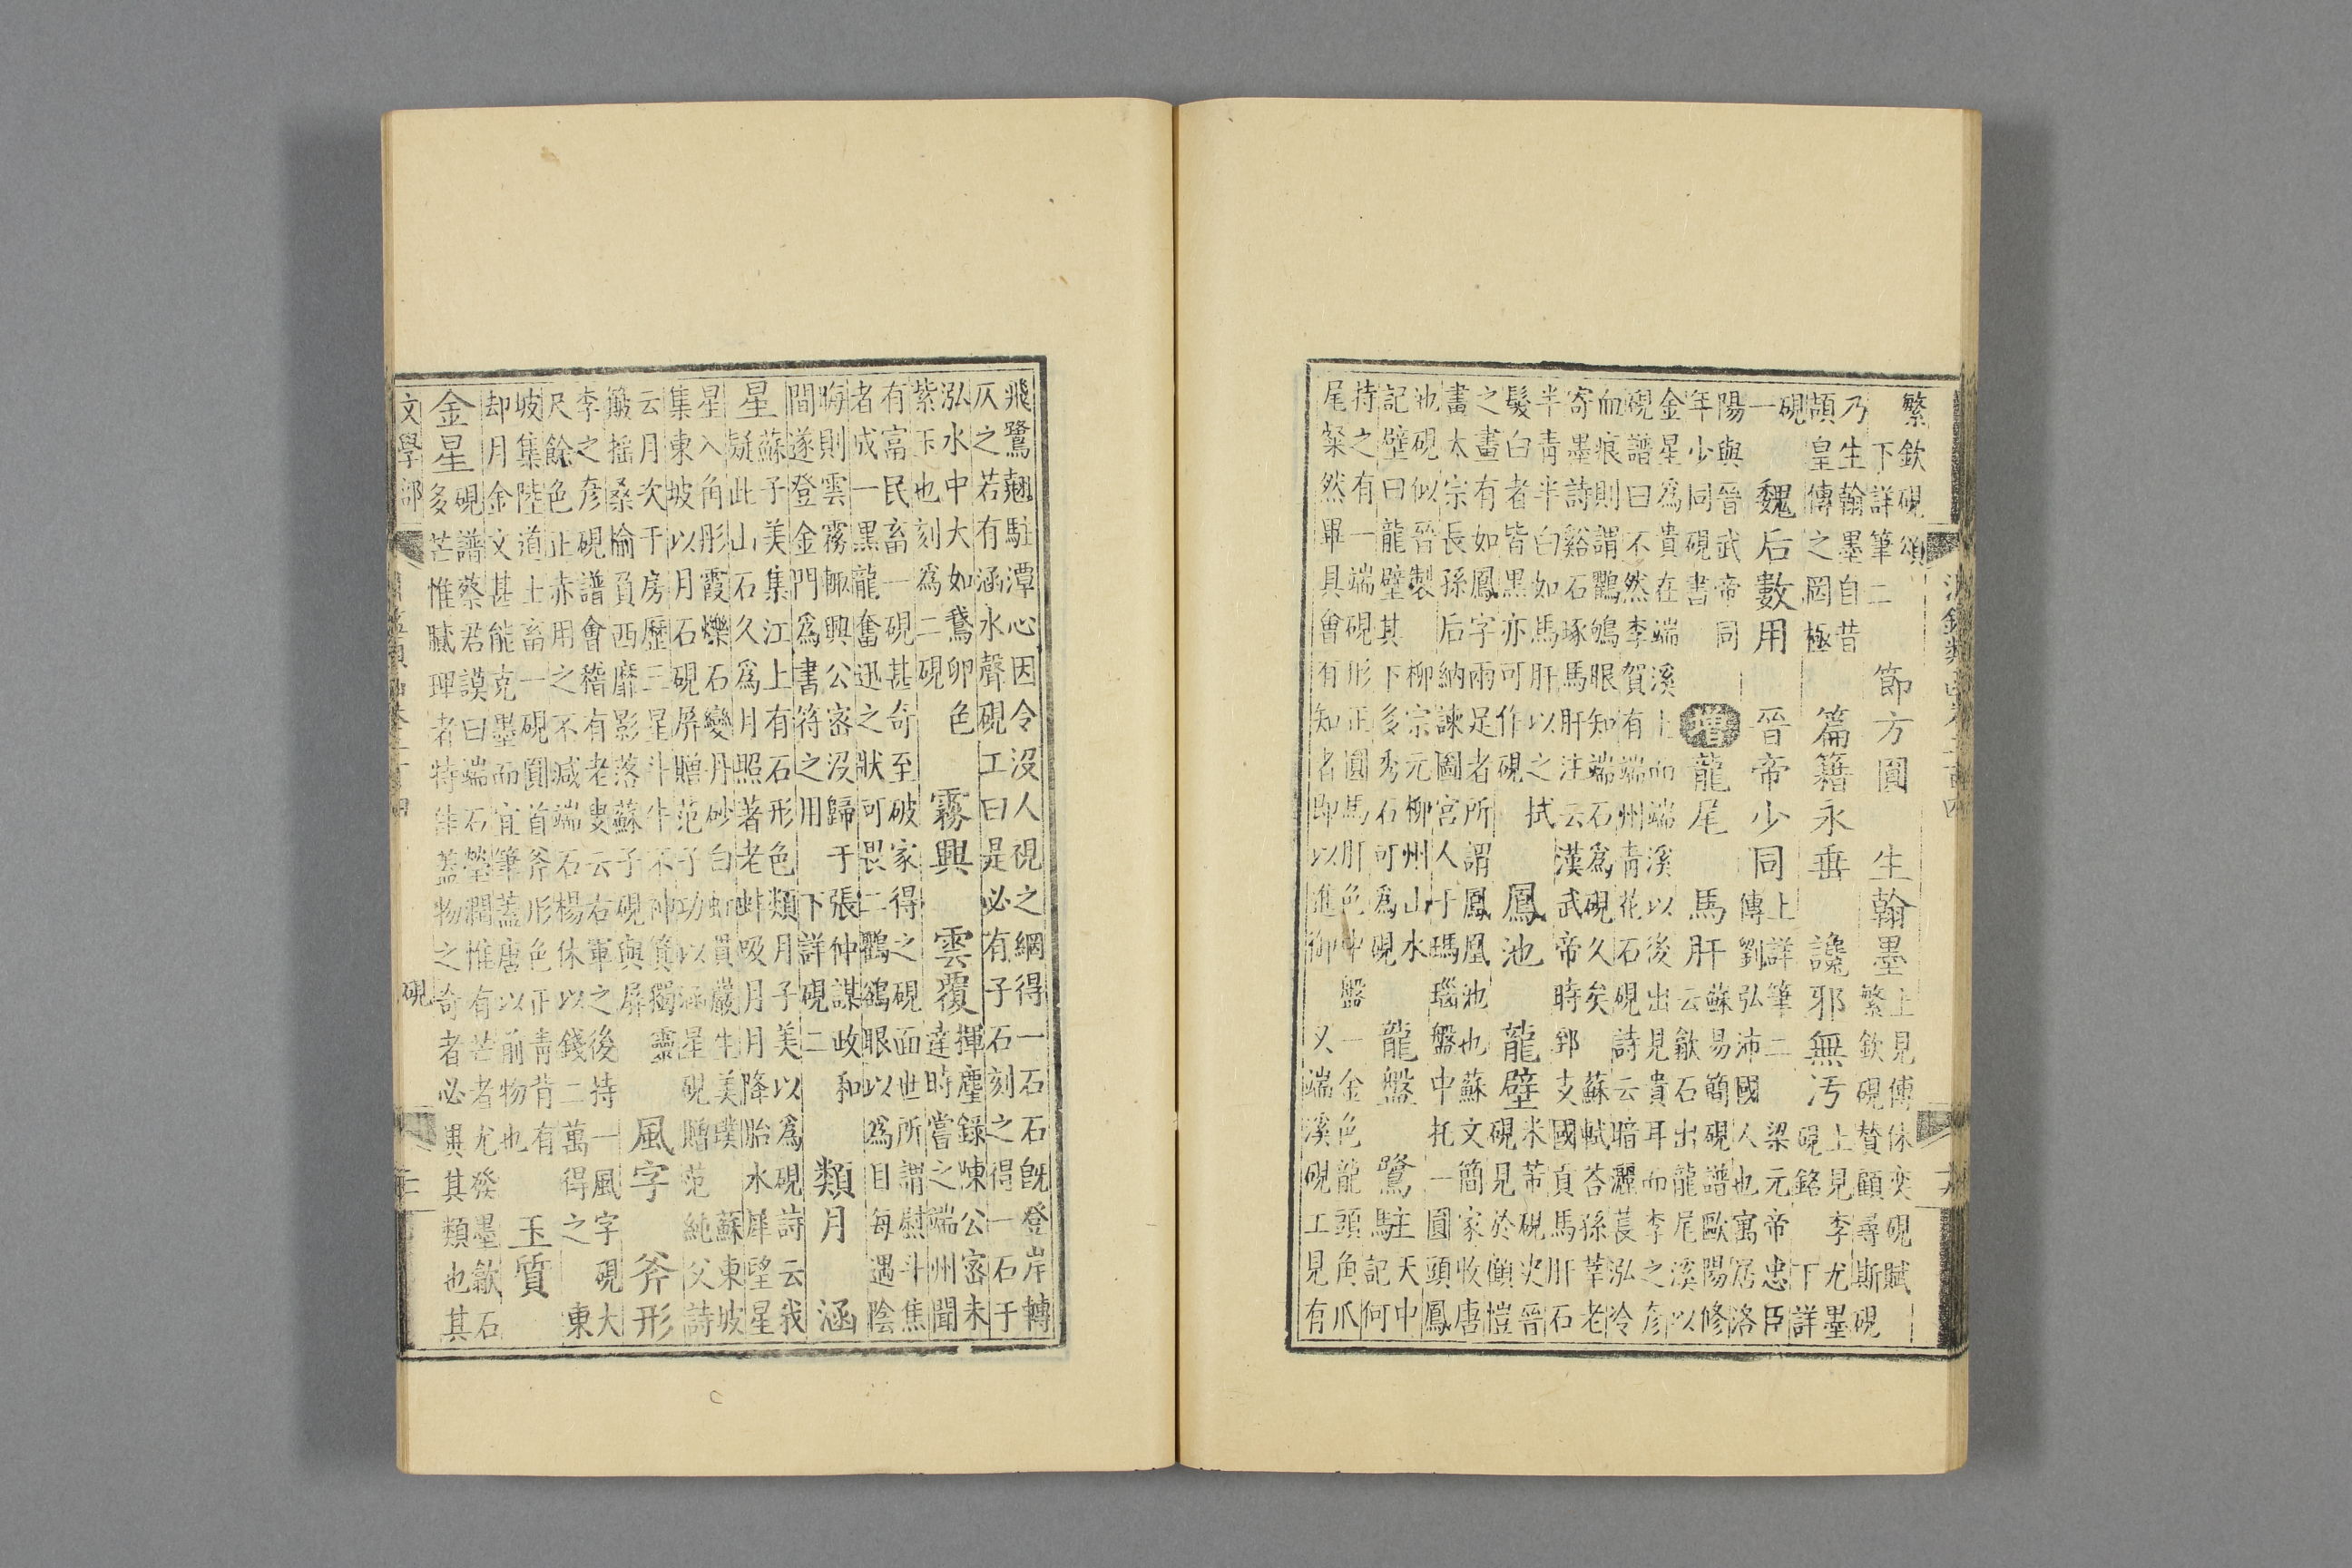 繁欽硯頌
下詳筆二
節方圓　生翰墨
上見傅休奕硯賦
繁欽硯贊顧尋斯硯
乃生翰墨自昔
頡皇傳之罔極
篇籍永垂　讒邪無汚
上見李尤墨
硯銘　下詳
硯
一
魏后數用　晉帝少同
上詳筆二　梁元帝忠臣
傳劉弘沛國人也寓居洛
陽與晉武帝同
年少同硯書
增龍尾　馬肝
蘇易簡硯譜歐陽修
云歙石出龍尾溪以
金星爲貴在端溪上而端溪以後出見貴耳而李之彦
硯譜曰不然李賀有端州青花石硯詩云暗灑萇泓冷
血痕則謂鸜鵒眼知端石爲硯久矣　蘇軾荅孫莘老
寄墨詩谿石琢馬肝注云漢武帝時郅支國貢馬肝石
半青半白如馬肝以之拭
髮白者皆黑亦可作硯
鳳池　龍壁
米芾硯史晉
硯見於顧愷
之畫有如鳳字兩足者所謂鳳凰池也蘇文簡家收唐
畫太宗長孫后納諫圖宮人于瑪瑙盤中托一圓頭鳳
池硯似晉製　柳宗元柳州山水
記壁曰龍壁其下多秀石可爲硯
龍盤　鷺駐
天中
記何
持之有一端硯形正圓馬肝色中盤一金色龍頭角爪
尾粲然畢具會有知者即以進御　又端溪硯工見有
飛鷺翹駐潭心因令沒人視之網得一石石旣登岸轉
仄之若有涵水聲硯工曰是必有子石刻之得一石于
泓水中大如鵞卵色
紫玉也刻爲二硯
霧興　雲覆
揮麈錄陳公密未
達時嘗之端州聞
有富民畜一硯甚奇至破家得之硯面世所謂慰斗焦
者成一黑龍奮迅之狀可畏二鸜鵒眼以爲目每遇陰
晦則雲霧輒興公密沒歸于張仲謀政和
間遂登金門爲書符之用　下詳硯二
類月　涵
星
蘇子美集江上有石形色類月子美以爲硯詩云我
疑此山石久爲月照著老蚌吸月月降胎水犀望星
星入角彤霞爍石變丹砂白虹貫巖生美璞　蘇東坡
集東坡以月石硯屏贈范子功以涵星硯贈范純父詩
云月次于房歷三星斗牛不神箕獨靈
簸搖桑榆負西靡影落蘇子硯與屏
風字　斧形
李之彦硯譜會稽有老叟云右軍之後持一風字硯大
尺餘色正赤用之不減端石楊休以錢二萬得之　東
坡集陸道士畜一硯圓首斧形色正青背有
却月金文甚能克墨而宜筆蓋唐以前物也
玉質
金星
硯譜蔡君謨曰端石瑩潤惟有芒者尤發墨歙石
多芒惟膩理者特佳蓋物之奇者必異其類也其
文學部　硯